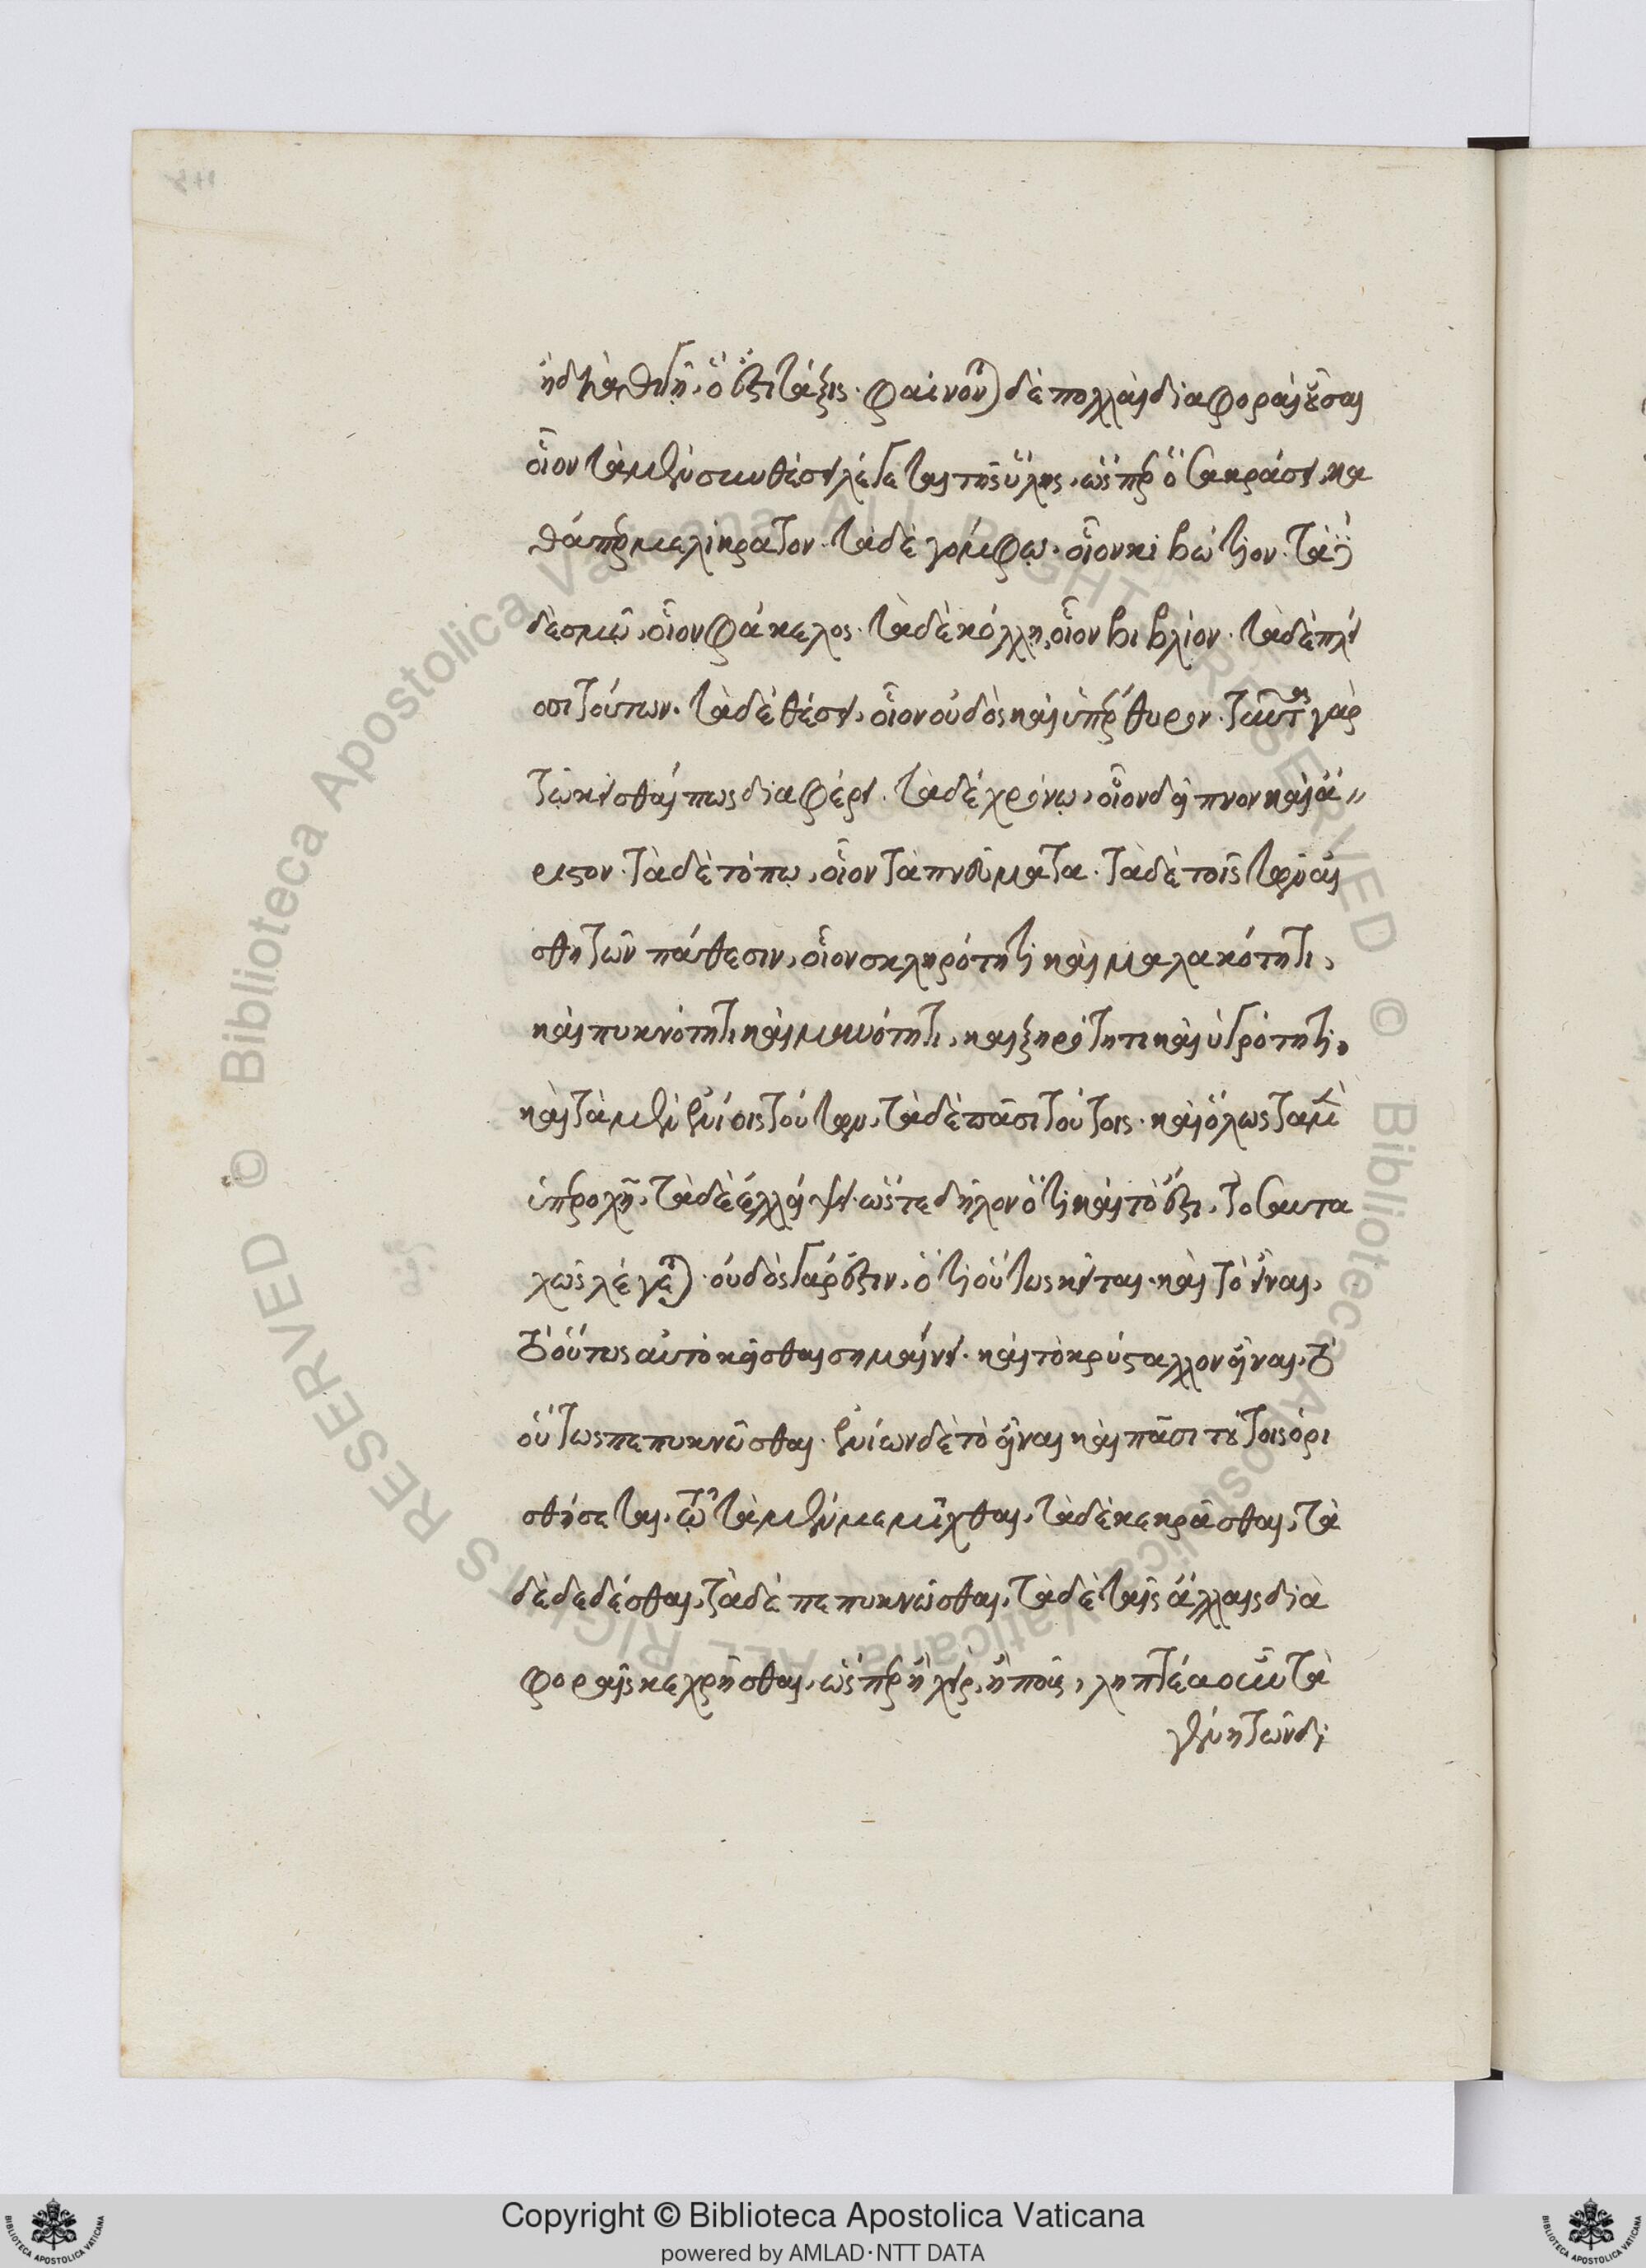 ἢ διαθιγῇ, ὅ ἐστι τάξις. φαίνονται δὲ πολλαὶ διαφοραὶ οὖσαι
οἷον τὰ μὲν συνθέσει λέγεται τῆς ὕλης, ὥσπερ ὅσα κράσει, κα
θάπερ μελίκρατον. τὰ δὲ γόμφῳ. οἷον κιβώτιον. τὰ δὲ
δεσμῷ, οἷον φάκελος. τὰ δὲ κόλλῃ, οἷον βιβλίον. τὰ δὲ πλεί
οσι τούτων. τὰ δὲ θέσει, οἷον οὐδὸς καὶ ὑπέρθυρον. ταῦτα γὰρ
τῷ κεῖσθαί πως διαφέρει. τὰ δὲ χρόνῳ, οἷον δεῖπνον καὶ ἄ
ριστον. τὰ δὲ τόπῳ, οἷον τὰ πνεύματα. τὰ δὲ τοῖς τῶν αἰ
σθητῶν πάθεσιν, οἷον σκληρότητι καὶ μαλακότητι,
καὶ πυκνότητι καὶ μανότητι, καὶ ξηρότητι καὶ ὑγρότητι,
καὶ τὰ μὲν ἐνίοις τούτων, τὰ δὲ πᾶσι τούτοις. καὶ ὅλως τὰ μὲν
ὑπεροχῇ, τὰ δὲ ἐλλείψει. ὥστε δῆλον ὅτι καὶ τὸ ἔστι, τοσαυτα
χῶς λέγεται. οὐδὸς γάρ ἐστιν, ὅτι οὕτως κεῖται. καὶ τὸ εἶναι,
τὸ οὕτως αὐτὸ κεῖσθαι σημαίνει. καὶ τὸ κρύσταλλον εἶναι, τὸ
οὕτως πεπυκνῶσθαι. ἐνίων δὲ τὸ εἶναι καὶ πᾶσι τούτοις ὁρι
σθήσεται, τῷ τὰ μὲν μεμῖχθαι, τὰ δὲ κεκρᾶσθαι, τὰ
δὲ δεδέσθαι, τὰ δὲ πεπυκνῶσθαι, τὰ δὲ ταῖς ἄλλαις δια
φοραῖς κεχρῆσθαι, ὥσπερ ἢ χείρ, ἢ πούς, ληπτέα οὖν τὰ
γένη τῶν δι
Copyright © Biblioteca Apostolica Vaticana
powered by AMLAD·NTT DATA